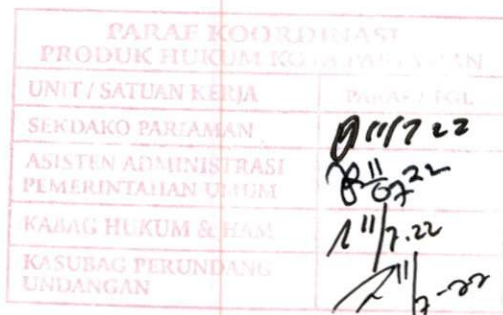 PARAF KOORDINASI
PRODUK HUKUM KOTA PARIAMAN
UNIT / SATUAN KERJA PARAF / TGL
SEKDAKO PARIAMAN 11/7 22
ASISTEN ADMINISTRASI
PEMERINTAHAN UMUM 11/07 22
KABAG HUKUM & HAM 11/7.22
KASUBAG PERUNDANG
UNDANGAN 11/7-22